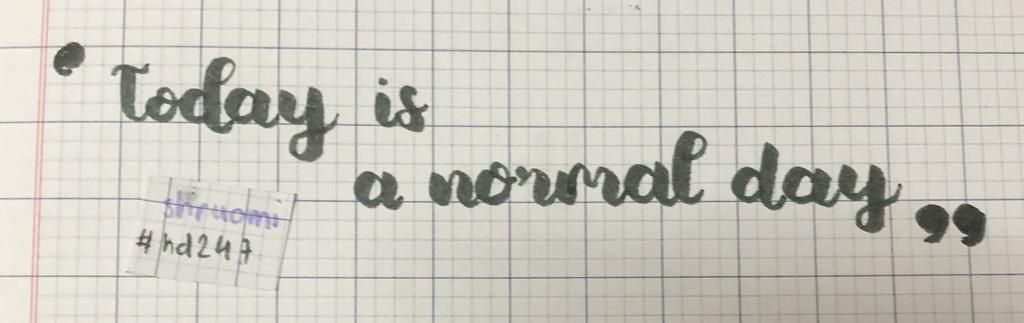 ‘Today is
a normal day,,
#hd247